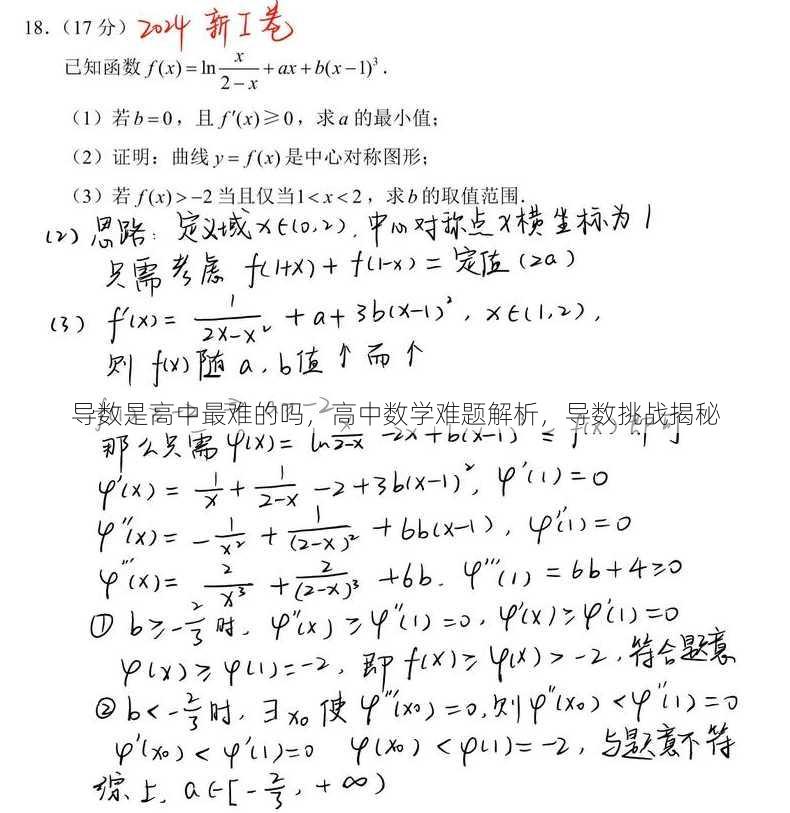 18.（17 分） 2024 新I卷
已知函数 f(x)=ln x/(2-x)+ax+b(x-1)³.
（1）若 b=0，且 f′(x)≥0，求 a 的最小值；
（2）证明：曲线 y=f(x) 是中心对称图形；
（3）若 f(x)>-2 当且仅当 1<x<2，求 b 的取值范围.
(2) 思路：定义域 x∈(0,2)，中心对称点 x 横坐标为 1
只需考虑 f(1+x)+f(1-x)=定值(2a)
(3) f′(x)= 1/(2x-x²) +a+3b(x-1)²，x∈(1,2)，
则 f(x) 随 a，b值↑而↑
导数是高中最难的吗，高中数学难题解析，导数挑战揭秘
那么只需 φ(x)= ln x/(2-x) -2x+b(x-1) ≤ f(x) 即可
φ′(x)= 1/x + 1/(2-x) -2+3b(x-1)²，φ′(1)=0
φ″(x)= -1/x² + 1/(2-x)² +6b(x-1)，φ″(1)=0
φ‴(x)= 2/x³ + 2/(2-x)³ +6b. φ‴(1)=6b+4≥0
① b≥-2/3 时，φ″(x)≥φ″(1)=0，φ′(x)≥φ′(1)=0
φ(x)≥φ(1)=-2，即 f(x)≥φ(x)>-2，符合题意
② b<-2/3 时，∃x₀ 使 φ‴(x₀)=0，则 φ″(x₀)<φ″(1)=0
φ′(x₀)<φ′(1)=0 φ(x₀)<φ(1)=-2，与题意不符
综上，a∈[-2/3，+∞)